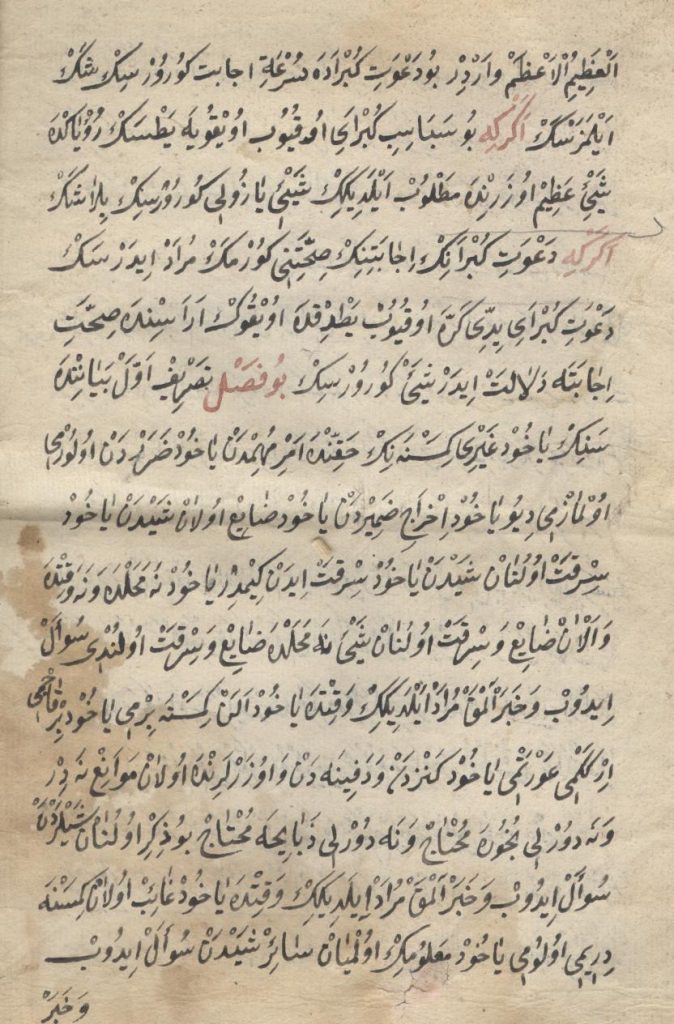 اَلْعَظِيمُ الْاَعْظَمْ واَرْدِرْ بُودَعْوَتِ كُبْرَادَه سُرْعَةِ اجابت كورُوْرْسِكْ شَكْ
اَيْلَمَزْسَكْ اَكَرْكِه بُو سَبَاسِبِ كُبْرَايِ اوقيُوبْ اُويْقُويَه يَطْسَكْ رُؤْيَاكْدَه
شَيْئِ عَظِيمْ اوُزَرِنْدَه مَطْلُوبْ اَيْلَدِيكِكْ شَيْئِ يَازُولِي كُورُوْرْسِنِكْ بِلَاشَكْ
اَكَرْكِه دَعْوَتِ كُبْرَانِكْ اِجَابَتِنِكْ صِحَّتَنِي كُورْمَكْ مُرَادْ اِيدَرْسَكْ
دَعْوَتِ كُبْرَايِ يِدِّي كَرَّه اُوقُيُوبْ يَطْدِقْدَه اُويْقُوكْ اَرَاسِنْدَه صِحَّتِ
اِجَابَتَه دَلَالَتْ اِيدَرْ شَيْئِ كُورُوْرْسِكْ بُو فَصْلْ تَصْرِيفِ اَوَّلْ بَيَانِنْدَه
سَنِكْ يَاخُودْ غَيْرِي كِمْسَنَه نِكْ حَقِّنْدَه اَمْرِ مُهِمْدَنْ يَاخُودْ ضَرَرْدَنْ اُولُورْمِي
اُولْمَازْمِي دِيُو يَاخُودْ اِخْرَاجِ ضَمِيرْدَنْ يَاخُودْ ضَايِعْ اُولَانْ شَيْدَنْ يَاخُودْ
سِرْقَتْ اُولُنَانْ شَيْدَنْ يَاخُودْ سِرْقَتْ اِيدَنْ كِيمْدِرْ يَاخُودْ نَه مَحَلْدَه وَنَه وَقِتْدَه
وَاَلَانْ ضَايِعْ وَسِرْقَتْ اُولُنَانْ شَيْئِ نَه مَحَلْدَه ضَايِعْ وَسِرْقَتْ اُولُنْدِي سُوأَلْ
اِيدُوبْ وَخَبَرْ اَلْمَقْ مُرَادْ اَيْلَدِيكِكْ وَقِتْدَه يَاخُودْ اَلَنْ كِمْسَنَه بِرْمِي يَاخُودْ بِرْقَاچْمِي
اِرْكَكْمِي عَوْرَتْمِي يَاخُودْ كَنْزْدَنْ وَدَفِينَه دَنْ وَاوُزَرْلَرِنْدَه اُولَانْ مَوَانِعْ نَه دِرْ
وَنَه دُورْلِي بُخُورَه مُحْتَاجْ وَنَه دُورْلِي ذَبَايِحَه مُحْتَاجْ بُو ذِكِرْ اُولُنَانْ شَيْلَرْدَنْ
سُوأَلْ اِيدُوبْ وَخَبَرْ اَلْمَقْ مُرَادْ اِيلَدِيكِكْ وَقِتْدَه يَاخُودْ غَائِبْ اُولَانْ كِمْسَنَه
دِرِيمِي اُولُومِي يَاخُودْ مَعْلُومِكْ اُولْمَيَانْ سَائِرْ شَيْدَنْ سُوأَلْ اِيدُوبْ
وَخَبَرْ